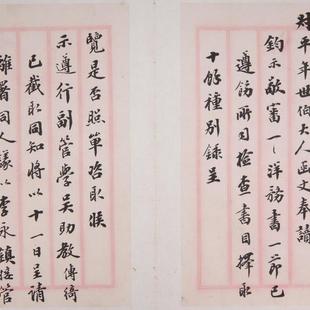 平年世伯大人函丈奉讀
鈞示敬審一一洋務書一節已
遵飭所司檢查書目擇取
十餘種別錄呈
覽是否照單咨取候
示遵行副管學吴助教傳綺
已截取同知將以十一日呈請
離署同人議以李永鎮接管